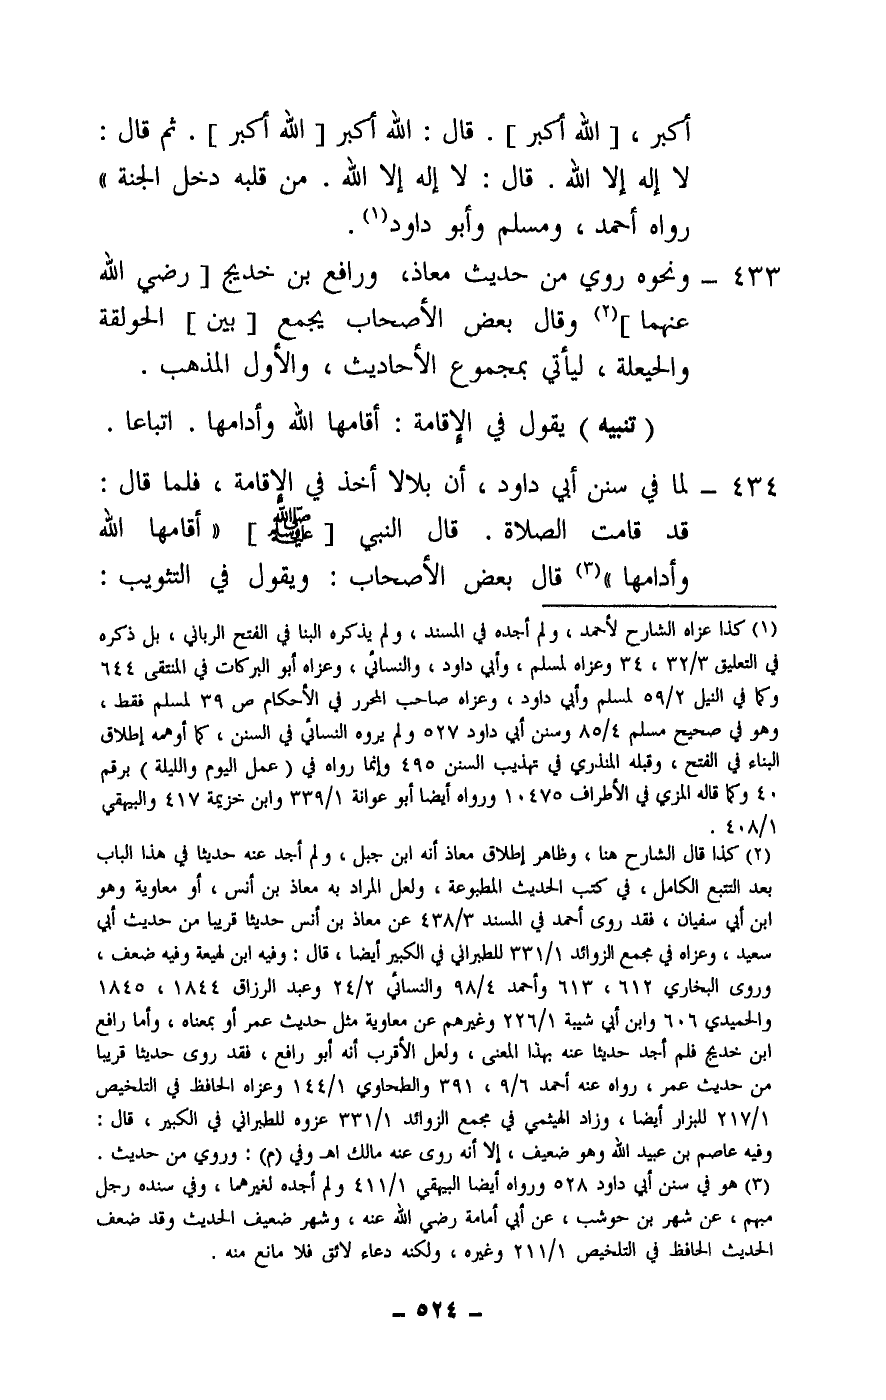 أكبر ، [ الله أكبر ] . قال : الله أكبر [ الله أكبر ] . ثم قال :
لا إله إلا الله . قال : لا إله إلا الله . من قلبه دخل الجنة »
رواه أحمد ، ومسلم وأبو داود(١) .
٤٣٣ – ونحوه روي من حديث معاذ، ورافع بن خديج [ رضي الله
عنهما ](٢) وقال بعض الأصحاب يجمع [ بين ] الحولقة
والحيعلة ، ليأتي بمجموع الأحاديث ، والأول المذهب .
( تنبيه ) يقول في الإقامة : أقامها الله وأدامها . اتباعا .
٤٣٤ – لما في سنن أبي داود ، أن بلالا أخذ في الإقامة ، فلما قال :
قد قامت الصلاة . قال النبي [ ﷺ ] « أقامها الله
وأدامها »(٣) قال بعض الأصحاب : ويقول في التثويب :
(١) كذا عزاه الشارح لأحمد ، ولم أجده في المسند ، ولم يذكره البنا في الفتح الرباني ، بل ذكره
في التعليق ٣٢/٣ ، ٣٤ وعزاه لمسلم ، وأبي داود ، والنسائي ، وعزاه أبو البركات في المنتقى ٦٤٤
وكما في النيل ٥٩/٢ لمسلم وأبي داود ، وعزاه صاحب المحرر في الأحكام ص ٣٩ لمسلم فقط ،
وهو في صحيح مسلم ٨٥/٤ وسنن أبي داود ٥٢٧ ولم يروه النسائي في السنن ، كما أوهمه إطلاق
البناء في الفتح ، وقبله المنذري في تهذيب السنن ٤٩٥ وإنما رواه في ( عمل اليوم والليلة ) برقم
٤٠ وكما قاله المزي في الأطراف ١٠٤٧٥ ورواه أيضا أبو عوانة ٣٣٩/١ وابن خزيمة ٤١٧ والبيهقي
٤٠٨/١ .
(٢) كذا قال الشارح هنا ، وظاهر إطلاق معاذ أنه ابن جبل ، ولم أجد عنه حديثا في هذا الباب
بعد التتبع الكامل ، في كتب الحديث المطبوعة ، ولعل المراد به معاذ بن أنس ، أو معاوية وهو
ابن أبي سفيان ، فقد روى أحمد في المسند ٤٣٨/٣ عن معاذ بن أنس حديثا قريبا من حديث أبي
سعيد ، وعزاه في مجمع الزوائد ٣٣١/١ للطبراني في الكبير أيضا ، قال : وفيه ابن لهيعة وفيه ضعف ،
وروى البخاري ٦١٢ ، ٦١٣ وأحمد ٩٨/٤ والنسائي ٢٤/٢ وعبد الرزاق ١٨٤٤ ، ١٨٤٥
والحميدي ٦٠٦ وابن أبي شيبة ٢٢٦/١ وغيرهم عن معاوية مثل حديث عمر أو بمعناه ، وأما رافع
ابن خديج فلم أجد حديثا عنه بهذا المعنى ، ولعل الأقرب أنه أبو رافع ، فقد روى حديثا قريبا
من حديث عمر ، رواه عنه أحمد ٩/٦ ، ٣٩١ والطحاوي ١٤٤/١ وعزاه الحافظ في التلخيص
٢١٧/١ للبزار أيضا ، وزاد الهيثمي في مجمع الزوائد ٣٣١/١ عزوه للطبراني في الكبير ، قال :
وفيه عاصم بن عبيد الله وهو ضعيف ، إلا أنه روى عنه مالك اهـ وفي (م) : وروي من حديث .
(٣) هو في سنن أبي داود ٥٢٨ ورواه أيضا البيهقي ٤١١/١ ولم أجده لغيرهما ، وفي سنده رجل
مبهم ، عن شهر بن حوشب ، عن أبي أمامة رضي الله عنه ، وشهر ضعيف الحديث وقد ضعف
الحديث الحافظ في التلخيص ٢١١/١ وغيره ، ولكنه دعاء لائق فلا مانع منه .
– ٥٢٤ –